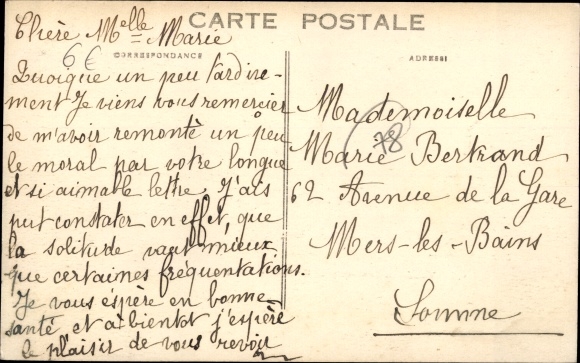 CARTE POSTALE
Chère Melle Marie
6€
CORRESPONDANCE
Quoique un peu tardive-
ment Je viens vous remercier
de m'avoir remonté un peu
le moral par votre longue
et si aimable lettre. J'ais
put constater en effet, que
la solitude vaut mieux
que certaines fréquentations.
Je vous éspère en bonne
santé et a bientot j'espère
le plaisir de vous revoir
ADRESSE
Mademoiselle
78
Marie Bertrand
62 Avenue de la Gare
Mers-les-Bains
Somme